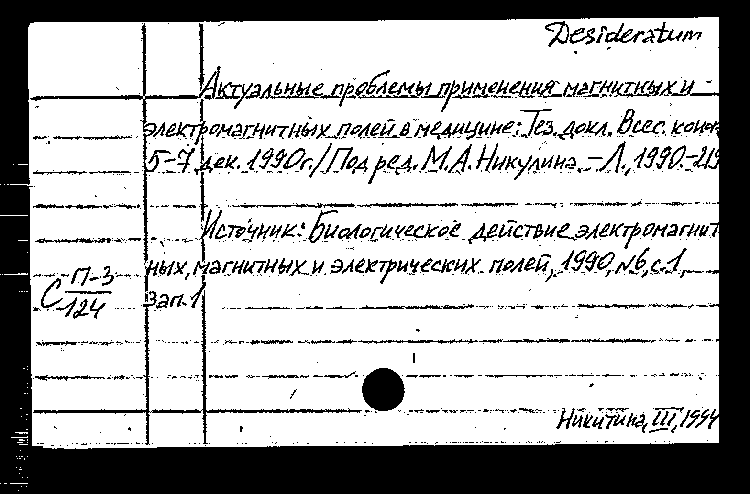 Desideratum
Актуальные проблемы применения магнитных и
электромагнитных полей в медицине: Тез. докл. Всес. конф.
5-7 дек. 1990г./Под ред. М.А.Никулина. – Л., 1990.-219
Источник: Биологическое действие электромагнит
ных, магнитных и электрических полей, 1990, №6, с.1,
Зап.1
С П-3
124
Никитина, III, 1994